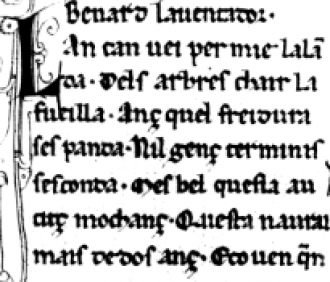 Benard
Lan can uei per mie lalã
da· Dels arbres chair la
fueilla· Anç quel freidura
ses panda· Nil genç terminis
sesconda· Mes bel questa au
mochanç· Questa naurai
mais dedos anç· Ecouen q̃n